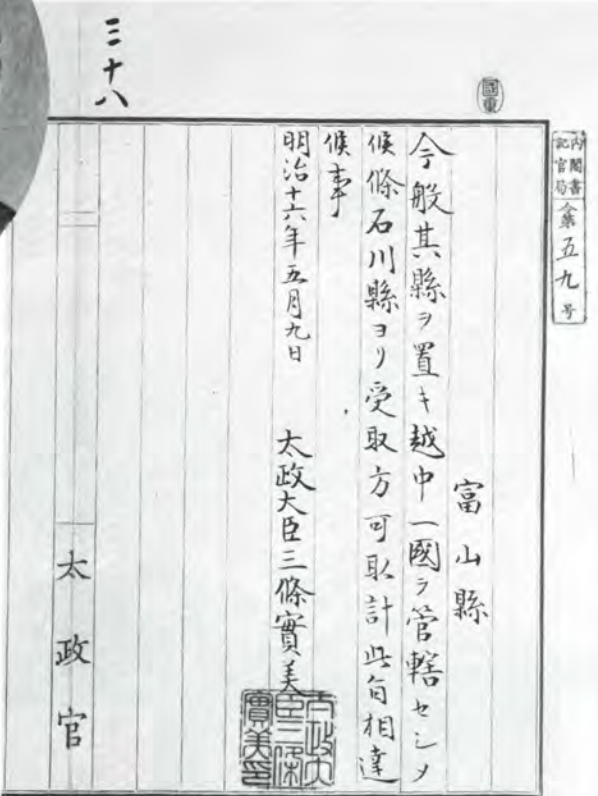 三十八
國重
内閣書
記官局
第五九号
富山縣
今般其縣ヲ置キ越中一國ヲ管轄セシメ
候條石川縣ヨリ受取方可取計此旨相達
候事
明治十六年五月九日 太政大臣三條實美
太政大
臣三條
實美印
太政官